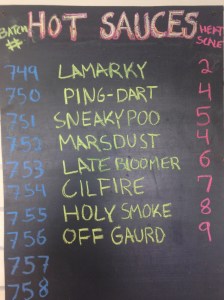 BATCH # HOT SAUCES HEAT SCALE
749 LAMARKY 2
750 PING-DART 4
751 SNEAKYPOO 5
752 MARSDUST 4
753 LATE BLOOMER 6
754 CILFIRE 7
755 HOLY SMOKE 8
756 OFF GAURD 9
757
758